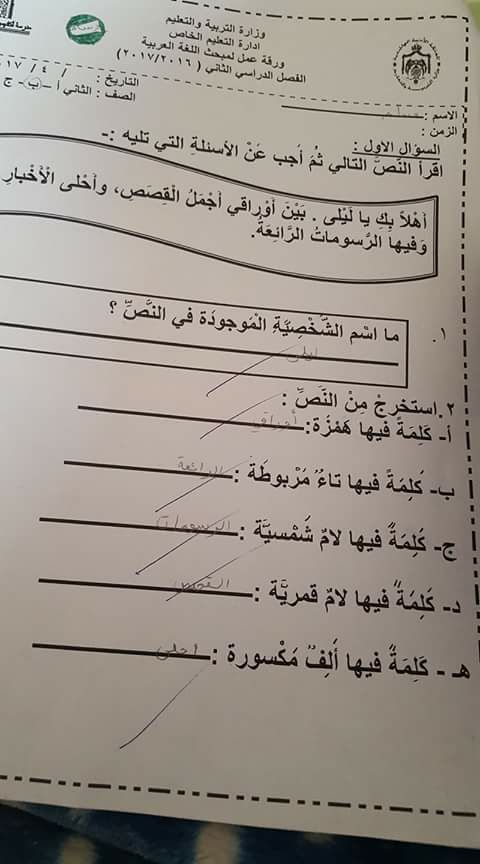 وزارة التربية والتعليم
ادارة التعليم الخاص
ورقة عمل لمبحث اللغة العربية
الفصل الدراسي الثاني ( ٢٠١٧/٢٠١٦ )
الاسم :
التاريخ : / ٤ / ٠١٧
الزمن :
الصف : الثاني أ - ب - ج
السؤال الاول :
اقرأ النَصَّ التالي ثُمَ أَجب عَنْ الأسئلةِ التي تليه :-
أهْلاً بِكِ يا لَيْلى . بَيْنَ أوْراقي أجْمَلُ الْقِصَصِ، وأحْلى الْأخْبارِ
وَفيها الرَّسوماتُ الرَّائِعَةُ.
١. ما اسْم الشَّخْصِيَّةِ الْمَوجودَة في النَّصِّ ؟
ليلى
٢. استخرِجْ مِنْ النَصِّ :
أ- كَلِمَةً فيها هَمْزَة: أوراقي
ب- كَلِمَةً فيها تاءُ مَرْبوطَة : الرائعة
ج- كَلِمَةً فيها لامٌ شَمْسيَّة : الرسومات
د- كَلِمَةً فيها لامٌ قمريَّة : القصص
هـ - كَلِمَةً فيها أَلِفٌ مَكْسورة : أحلى